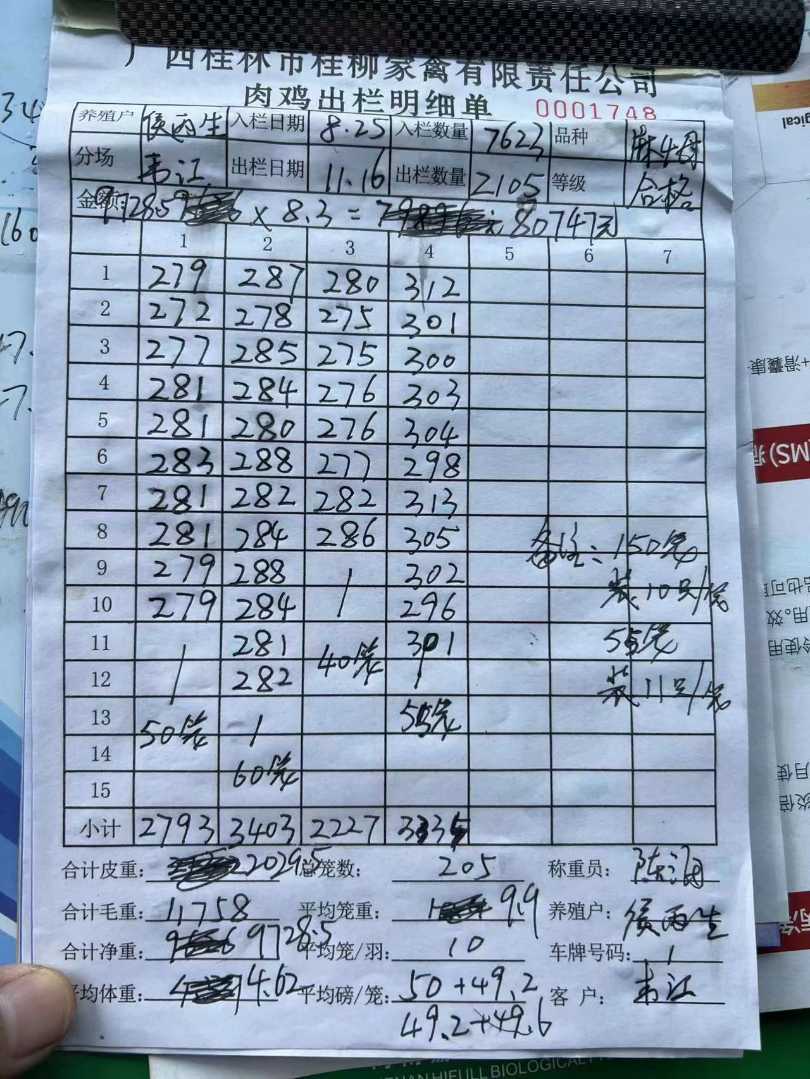 广西桂林市桂柳家禽有限责任公司
肉鸡出栏明细单 0001748
养殖户 侯丙生 入栏日期 8.25 入栏数量 7623 品种
分场 韦江 出栏日期 11.16 出栏数量 2105 等级 合格
金额: 9728.5 × 8.3 = 80747元
1 2 3 4 5 6 7
1 279 287 280 312
2 272 278 275 301
3 277 285 275 300
4 281 284 276 303
5 281 280 276 304
6 283 288 277 298
7 281 282 282 313
8 281 284 286 305 备注:150笼
9 279 288 / 302 装10只/笼
10 279 284 / 296
11 / 281 40笼 301 55笼
12 / 282 / 装11只/笼
13 50笼 / 55笼
14 60笼
15
小计 2793 3403 2227 3335
合计皮重: 2029.5 总笼数: 205 称重员:
合计毛重: 11758 平均笼重: 9.9 养殖户: 侯丙生
合计净重: 9728.5 平均笼/羽: 10 车牌号码: 1
平均体重: 4.62 平均磅/笼: 50+49.2 客户: 韦江
49.2+49.6